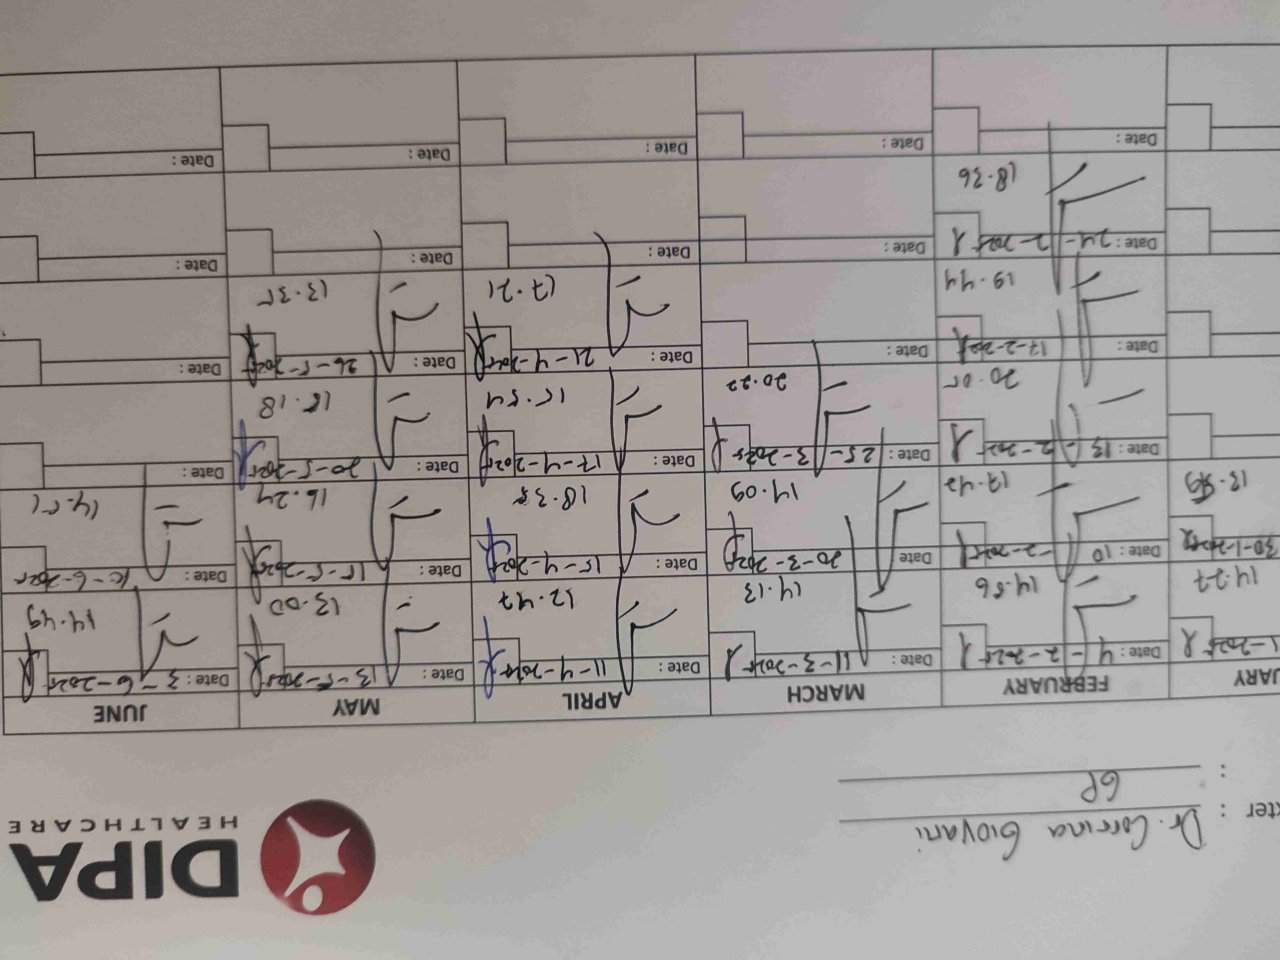 DIPA
HEALTHCARE
: Dr. Corrina Giovani
: GP
UARY FEBRUARY MARCH APRIL MAY JUNE
1-2025 Date: 4-2-2025 Date: 11-3-2025 Date: 11-4-2025 Date: 13-5-2025 Date: 3-6-2025
14.27 14.56 14.13 12.47 13.00 14.49
30-1-2025 Date: 10-2-2025 Date 20-3-2025 Date: 15-4-2025 Date: 15-5-2025 Date: 10-6-2025
17.42 14.09 16.24 14.51
Date: 13-2-2025 Date: 25-3-2025 Date: 17-4-2025 Date: 20-5-2025 Date:
20.05 20.22 15.54 15.18
Date: 17-2-2025 Date: Date: 21-4-2025 Date: 26-5-2025 Date:
19.44 17.21 13.35
Date: 24-2-2025 Date: Date: Date: Date:
18.36
Date: Date: Date: Date: Date: